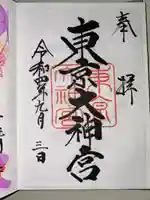 奉拝
東京大神宮
令和四年九月三日